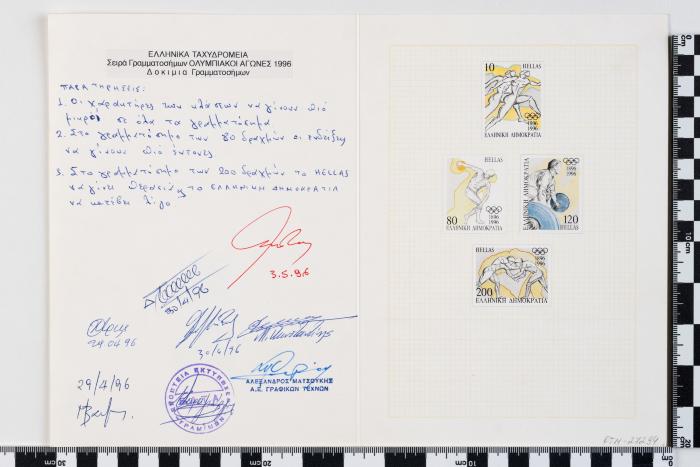 ΕΛΛΗΝΙΚΑ ΤΑΧΥΔΡΟΜΕΙΑ
Σειρά Γραμματοσήμων ΟΛΥΜΠΙΑΚΟΙ ΑΓΩΝΕΣ 1996
Δοκιμια Γραμματοσήμων
ΠΑΡΑΤΗΡΗΣΕΙΣ:
1. Οι χαρακτήρες των κλάσεων να γίνουν πιό
μικροί σε όλα τα γραμματόσημα
2. Στο γραμματόσημο των 80 δραχμών οι ενδείξεις
να γίνουν πιό έντονες
3. Στο γραμματόσημο των 200 δραχμών το HELLAS
να γίνει το ΕΛΛΗΝΙΚΗ ΔΗΜΟΚΡΑΤΙΑ
να κατέβει λίγο
3.5.96
30/4/96
29.04.96
30/4/96
29/4/96
ΑΛΕΞΑΝΔΡΟΣ ΜΑΤΣΟΥΚΗΣ
Α.Ε. ΓΡΑΦΙΚΩΝ ΤΕΧΝΩΝ
10 HELLAS
1896
1996
ΕΛΛΗΝΙΚΗ ΔΗΜΟΚΡΑΤΙΑ
HELLAS
80
1896
1996
ΕΛΛΗΝΙΚΗ ΔΗΜΟΚΡΑΤΙΑ
ΕΛΛΗΝΙΚΗ ΔΗΜΟΚΡΑΤΙΑ
1896
1996
120
HELLAS
HELLAS
1896
1996
200
ΕΛΛΗΝΙΚΗ ΔΗΜΟΚΡΑΤΙΑ
30 cm
20
10
0
10 cm
20